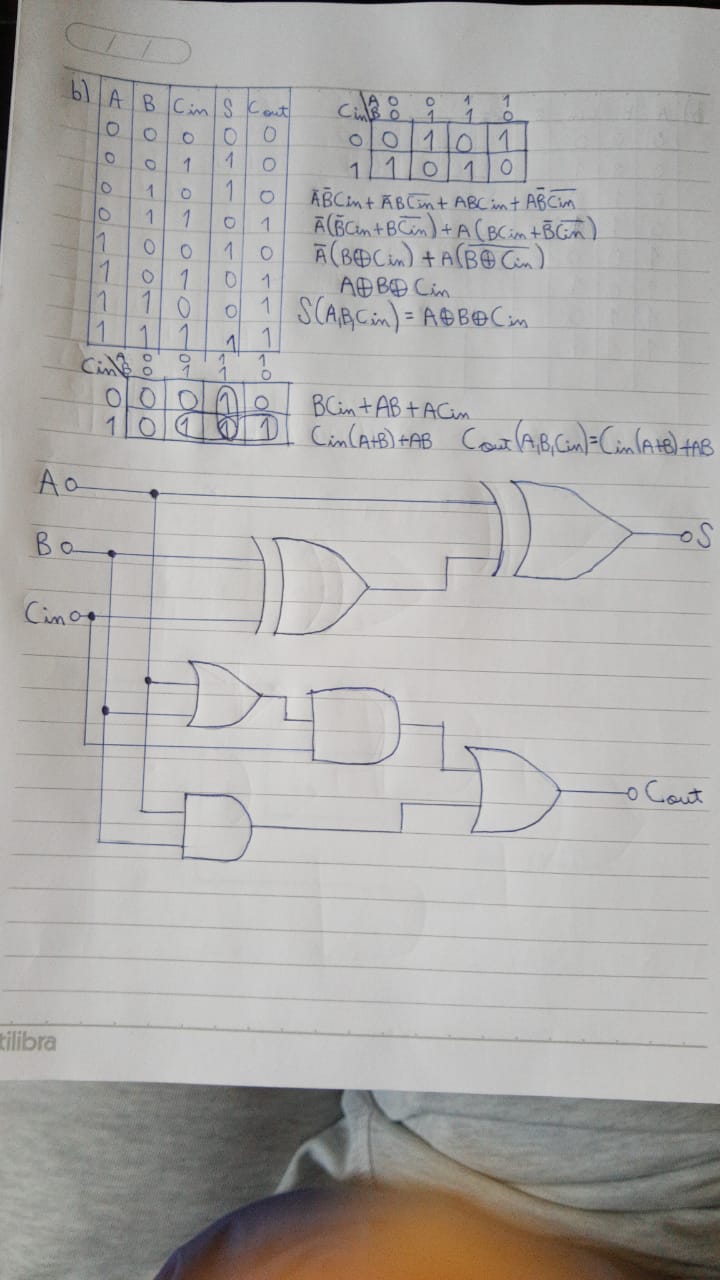 b) A B Cin S Cout
0 0 0 0 0
0 0 1 1 0
0 1 0 1 0
0 1 1 0 1
1 0 0 1 0
1 0 1 0 1
1 1 0 0 1
1 1 1 1 1
A 0 0 1 1
Cin\B 0 1 1 0
0 0 1 0 1
1 1 0 1 0
A̅B̅Cin + A̅BC̅i̅n̅ + ABCin + AB̅C̅i̅n̅
A̅(B̅Cin + BC̅i̅n̅) + A(BCin + B̅C̅i̅n̅)
A̅(B⊕Cin) + A(B̅⊕̅C̅i̅n̅)
A⊕B⊕Cin
S(A,B,Cin) = A⊕B⊕Cin
A 0 0 1 1
Cin\B 0 1 1 0
0 0 0 1 0
1 0 1 1 1
BCin + AB + ACin
Cin(A+B) + AB Cout(A,B,Cin) = Cin(A+B) + AB
A
B
S
Cin
Cout
tilibra